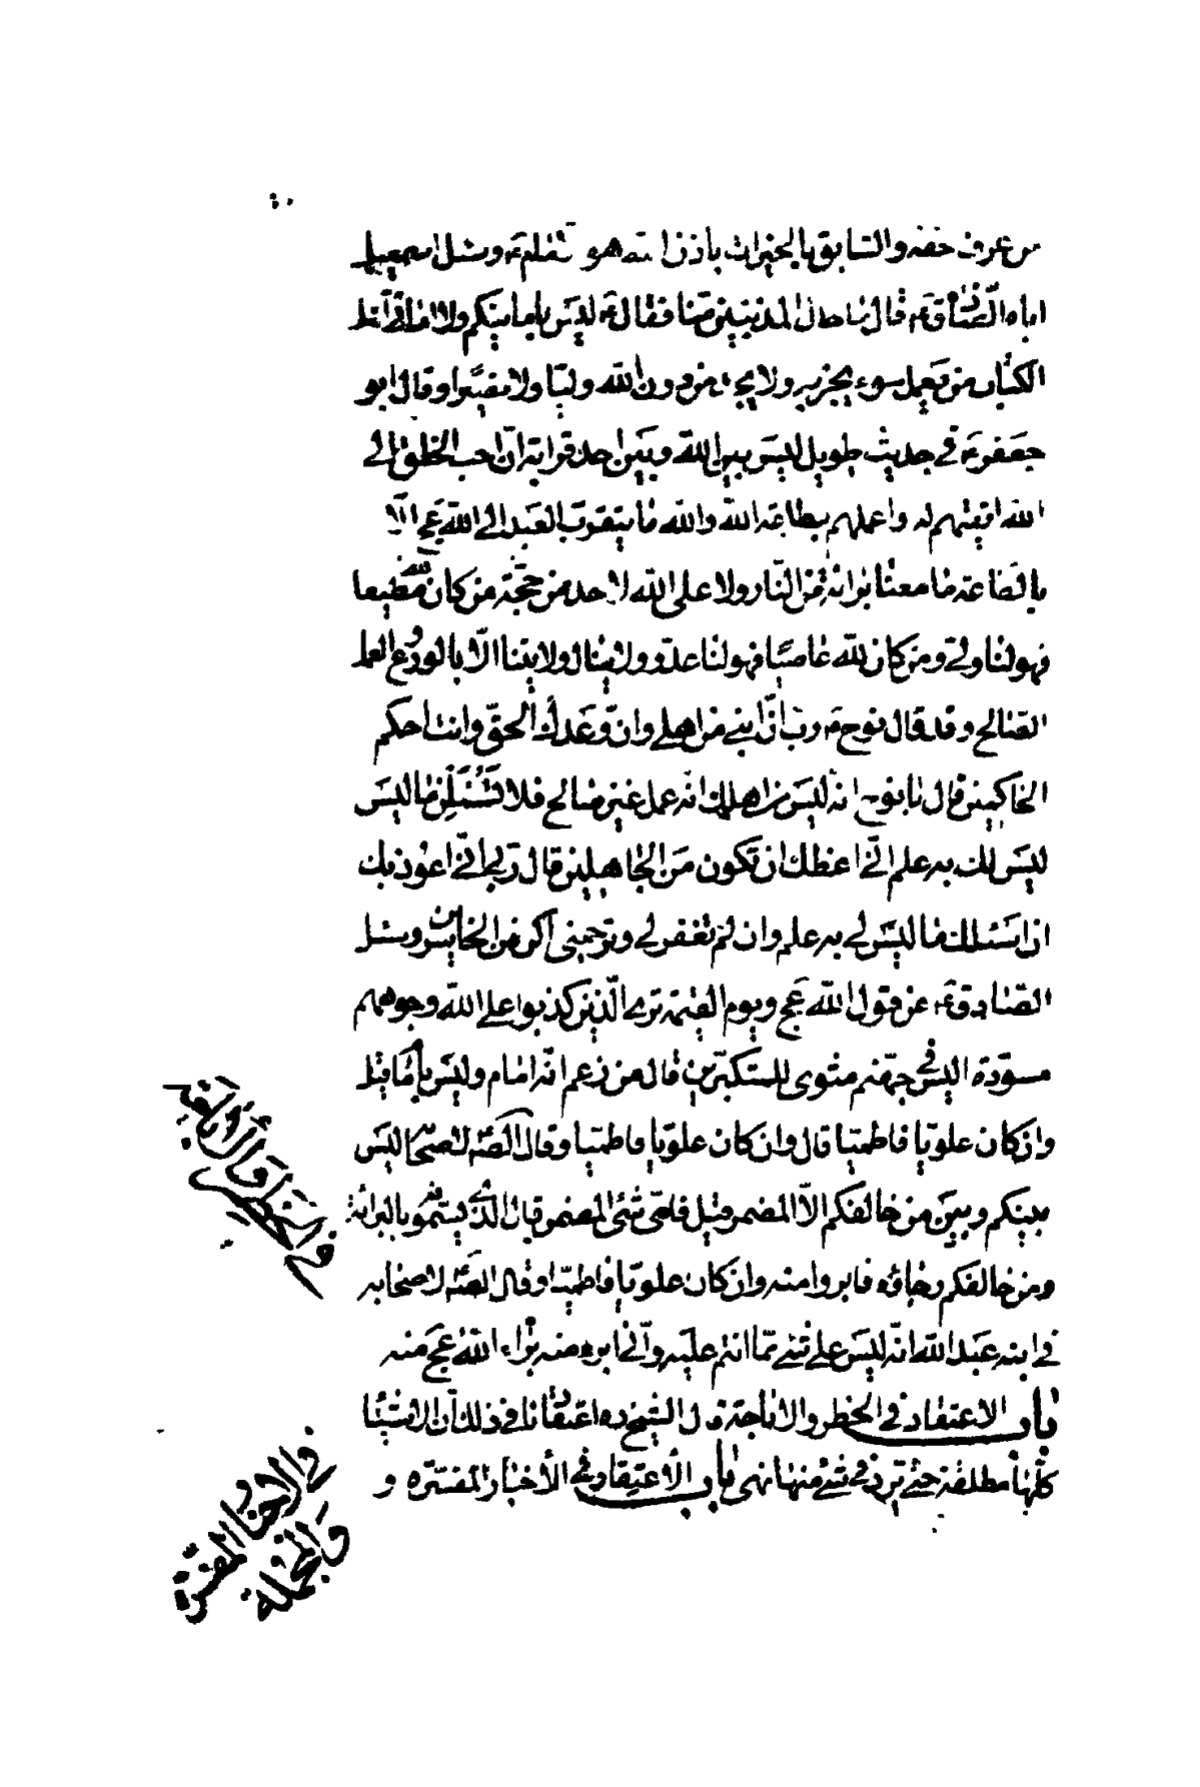 من عرف حقه والسابق بالخيرات باذن الله هو الامام وسئل اسمعيل
اباه الصادق ع قال ما حال المذنبين منا فقال ع ليس بامانيكم ولا اماني اهل
الكتاب من يعمل سوء يجز به ولا يجد من دون الله وليا ولا نصيرا وقال ابو
جعفر ع في حديث طويل ليس بين الله وبين احد قرابة ان احب الخلق الى
الله اتقيهم له واعملهم بطاعة الله والله ما يتقرب العبد الى الله عج الا
بالطاعة ما معنا براءة من النار ولا على الله لاحد من حجة من كان لله مطيعا
فهو لنا ولي ومن كان لله عاصيا فهو لنا عدو ولا ينال ولايتنا الا بالورع والعمل
الصالح وقد قال نوح ع رب ان ابني من اهلي وان وعدك الحق وانت احكم
الحاكمين قال يا نوح انه ليس من اهلك انه عمل غير صالح فلا تسئلن ما ليس
ليس لك به علم اني اعظك ان تكون من الجاهلين قال رب اني اعوذ بك
ان اسئلك ما ليس لي به علم وان لم تغفر لي وترحمني اكن من الخاسرين وسئل
الصادق ع عن قول الله عج ويوم القيمة ترى الذين كذبوا على الله وجوههم
مسودة اليس في جهنم مثوى للمتكبرين قال من زعم انه امام وليس بامام قيل
وان كان علويا فاطميا قال وان كان علويا فاطميا وقال الصه لاصحابه ليس
بينكم وبين من خالفكم الا المضمر قيل فاي شئ المضمر قال الذي يسمونه بالبرائة
ومن خالفكم وجازه فابروا منه وان كان علويا فاطميا وقال الصه لاصحابه
في ابنه عبد الله انه ليس على شئ مما انتم عليه واني ابرء منه براء الله عج منه
باب الاعتقاد في الحظر والاباحة قال الشيخ ره اعتقادنا في ذلك ان الاشيا
كلها مطلقة حتى يرد في شئ منها نهى باب الاعتقاد في الأخبار المفسره و
في الحظر والأباحة
في الاخبار المفسرة
والمجملة